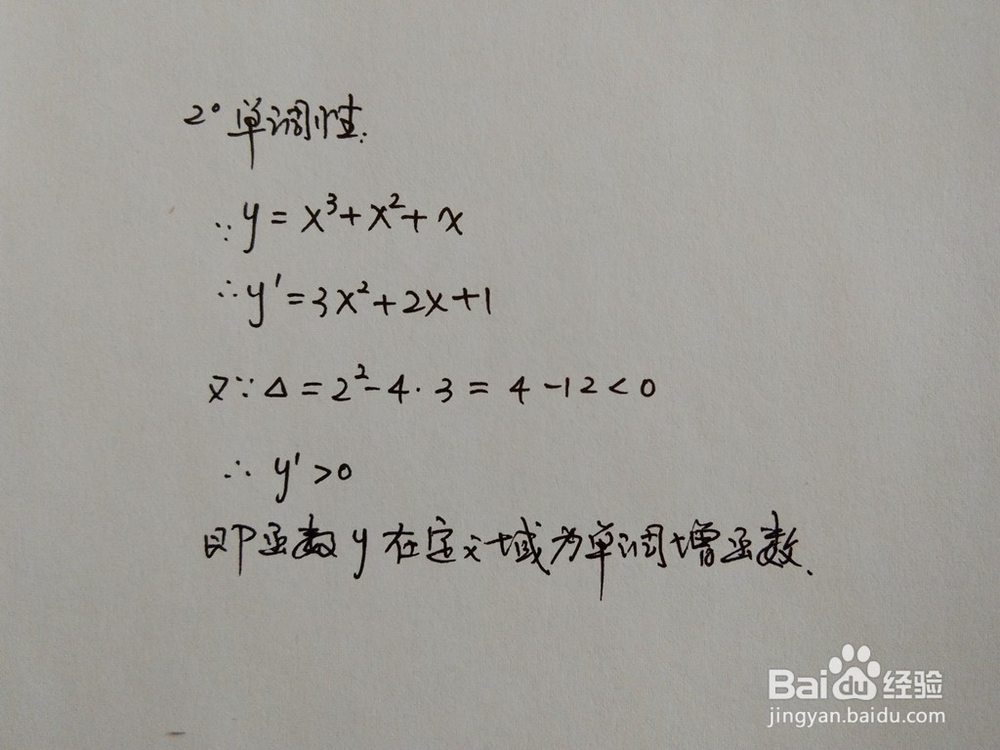 2° 单调性:
∵y = x³+x²+x
∴y'=3x²+2x+1
又∵Δ=2²-4·3=4-12<0
∴ y'>0
即函数y在定义域为单调增函数.
Baidu 经验
jingyan.baidu.com